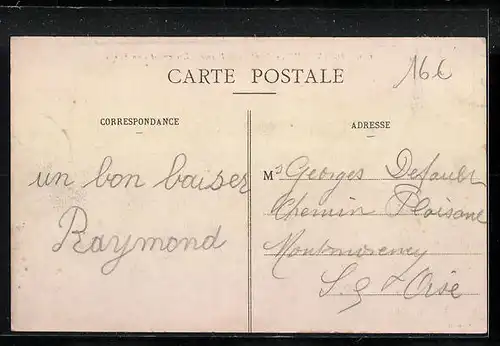 CARTE POSTALE
16 €
CORRESPONDANCE
ADRESSE
un bon baiser
Raymond
Mr Georges Default
Chemin Plaisane
Montmorency
S. & d'Oise